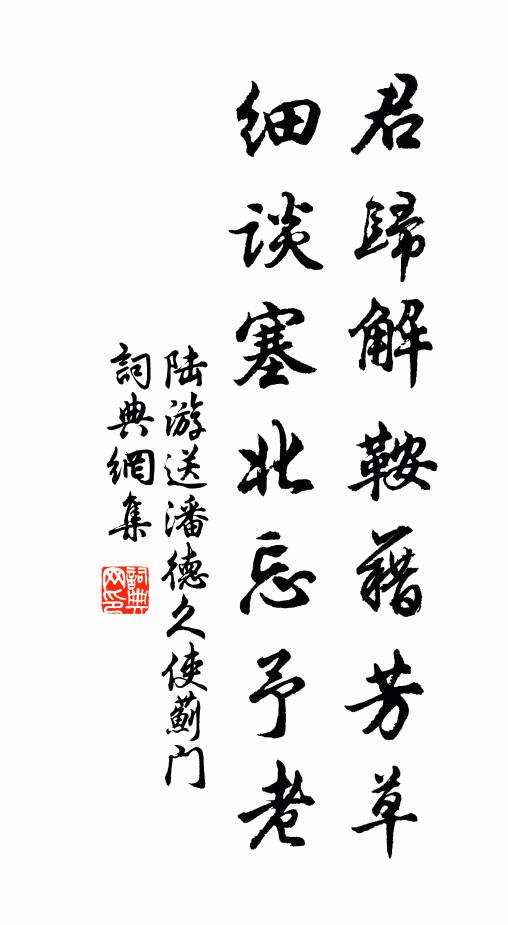 君歸解鞍藉芳草
细谈塞北忘予老
陆游送潘德久使薊门
詞典網集
詞典
网印